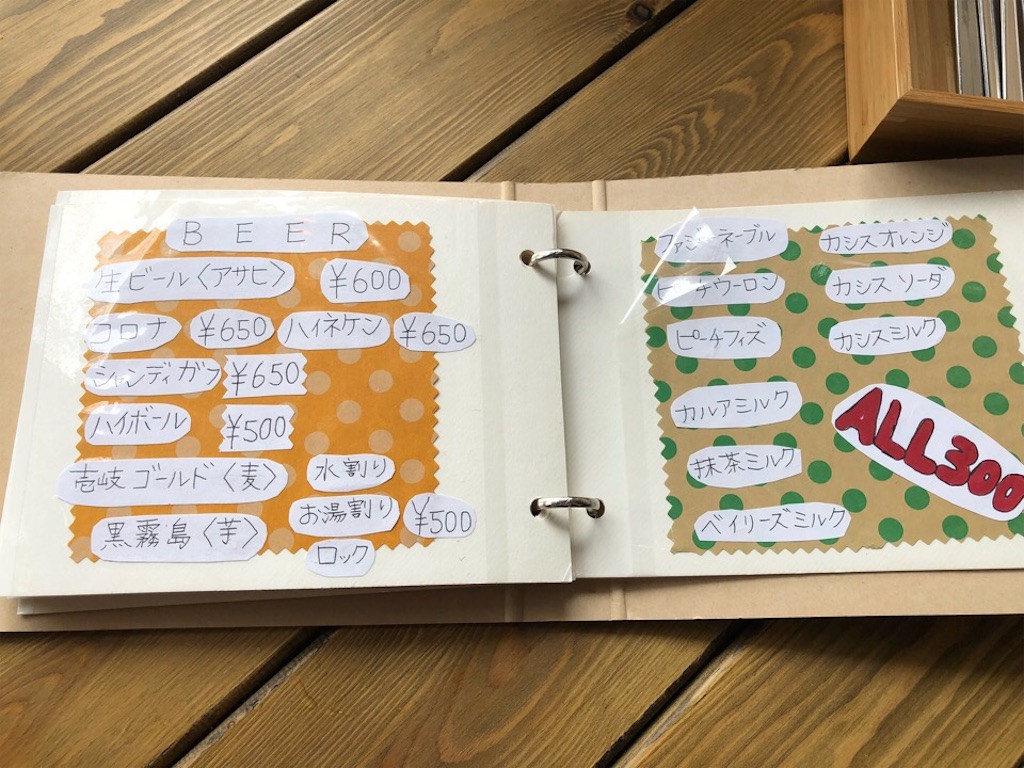 BEER
生ビール〈アサヒ〉 ¥600
コロナ ¥650 ハイネケン ¥650
シャンディガフ ¥650
ハイボール ¥500
壱岐ゴールド〈麦〉 水割り
黒霧島〈芋〉 お湯割り ¥500
ロック
ファジーネーブル カシスオレンジ
ピーチウーロン カシスソーダ
ピーチフィズ カシスミルク
カルアミルク
抹茶ミルク
ベイリーズミルク
ALL300